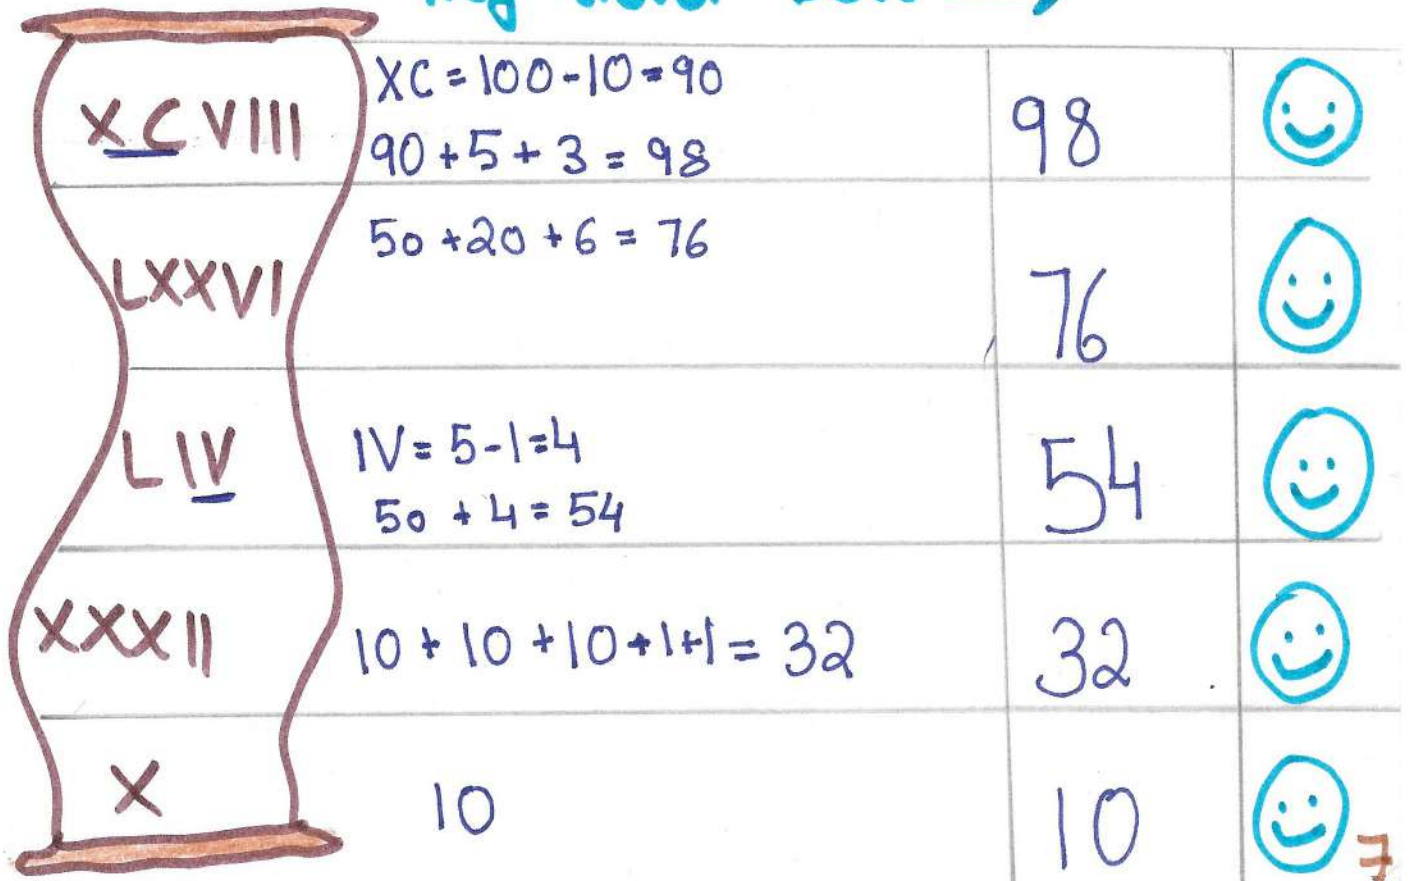 XCVIII
XC = 100 - 10 = 90
90 + 5 + 3 = 98
98
LXXVI
50 + 20 + 6 = 76
76
LIV
IV = 5 - 1 = 4
50 + 4 = 54
54
XXXII
10 + 10 + 10 + 1 + 1 = 32
32
X
10
10
7